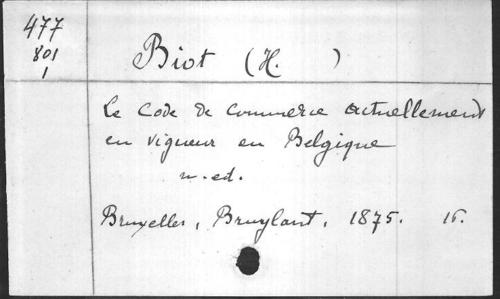 477
801
1
Biot (H. )
Le Code de Commerce actuellement
en vigueur en Belgique
n. ed.
Bruxelles, Bruylant, 1875. 16.